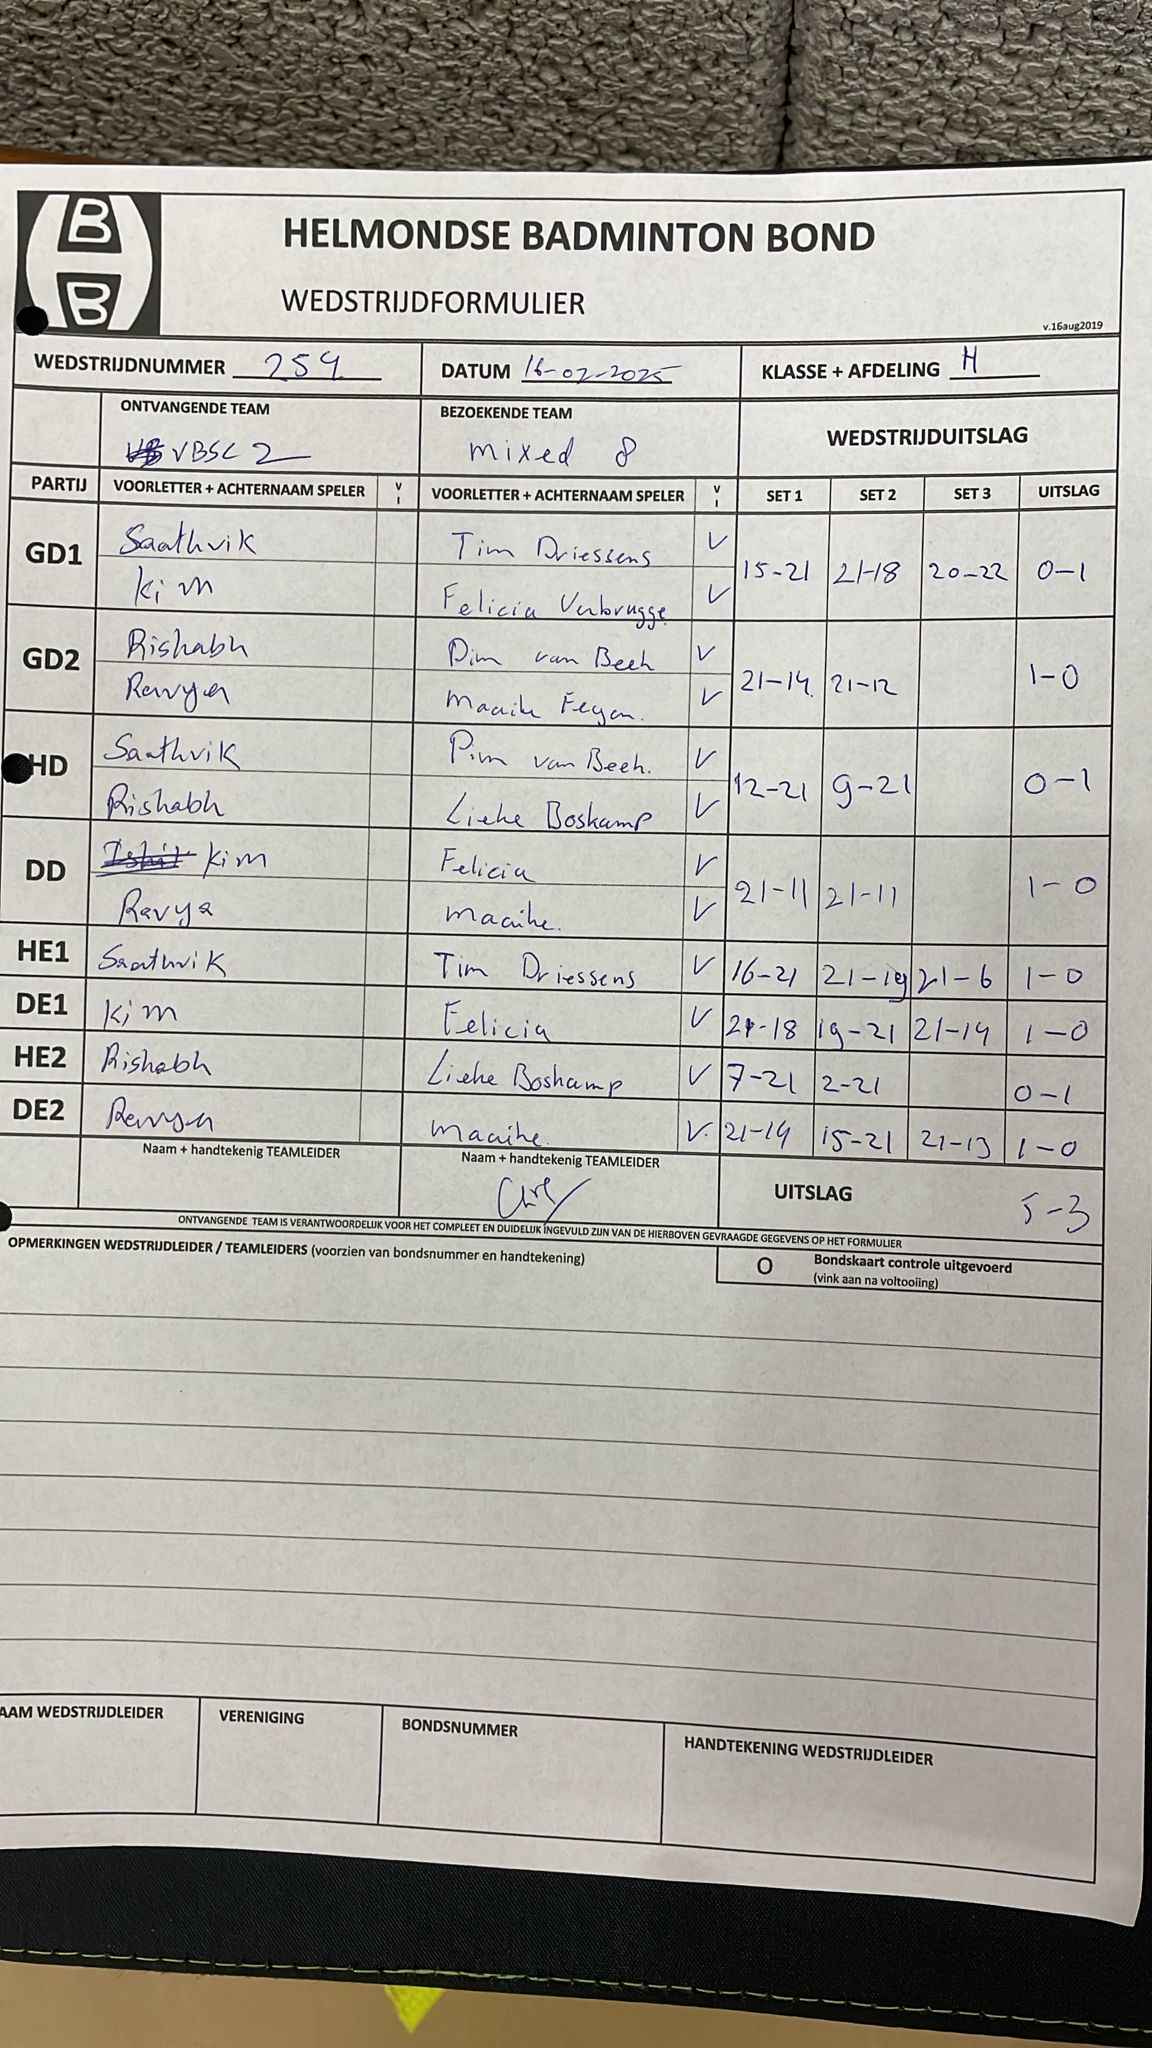 B
B
HELMONDSE BADMINTON BOND
WEDSTRIJDFORMULIER
v.16aug2019
WEDSTRIJDNUMMER 254 DATUM 16-02-2025 KLASSE + AFDELING H
ONTVANGENDE TEAM BEZOEKENDE TEAM WEDSTRIJDUITSLAG
VBSC 2 mixed 8
PARTIJ VOORLETTER + ACHTERNAAM SPELER V I VOORLETTER + ACHTERNAAM SPELER V I SET 1 SET 2 SET 3 UITSLAG
GD1 Saathvik Tim Driessens V 15-21 21-18 20-22 0-1
Kim Felicia Verbrugge V
GD2 Rishabh Pim van Beek V 21-14 21-12 1-0
Ravya Maaike Feyen. V
HD Saathvik Pim van Beek. V 12-21 9-21 0-1
Rishabh Lieke Boskamp V
DD Kim Felicia V 21-11 21-11 1-0
Ravya Maaike. V
HE1 Saathvik Tim Driessens V 16-21 21-19 21-6 1-0
DE1 Kim Felicia V 21-18 19-21 21-14 1-0
HE2 Rishabh Lieke Boskamp V 7-21 2-21 0-1
DE2 Ravya Maaike. V. 21-19 15-21 21-13 1-0
Naam + handtekenig TEAMLEIDER Naam + handtekenig TEAMLEIDER UITSLAG 5-3
ONTVANGENDE TEAM IS VERANTWOORDELIJK VOOR HET COMPLEET EN DUIDELIJK INGEVULD ZIJN VAN DE HIERBOVEN GEVRAAGDE GEGEVENS OP HET FORMULIER
OPMERKINGEN WEDSTRIJDLEIDER / TEAMLEIDERS (voorzien van bondsnummer en handtekening)
O Bondskaart controle uitgevoerd
(vink aan na voltooiing)
AAM WEDSTRIJDLEIDER VERENIGING BONDSNUMMER HANDTEKENING WEDSTRIJDLEIDER